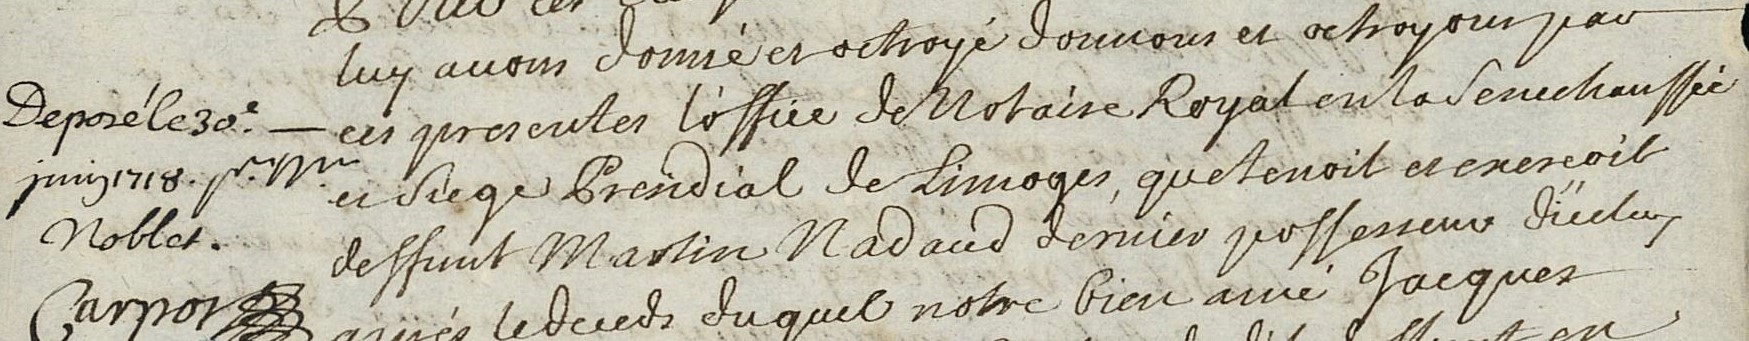 luy avons donné et octroyé donnons et octroyons par
ces presentes l'office de Notaire Royal en la Senechaussée
et Siege Presidial de Limoges, que tenoit et exerçoit
deffunt Martin Nadaud dernier possesseur d'iceluy
apres le deceds duquel notre bien amé Jacques
Deposé le 30e.
juin 1718. pr. Mr
Noblet.
Carpot